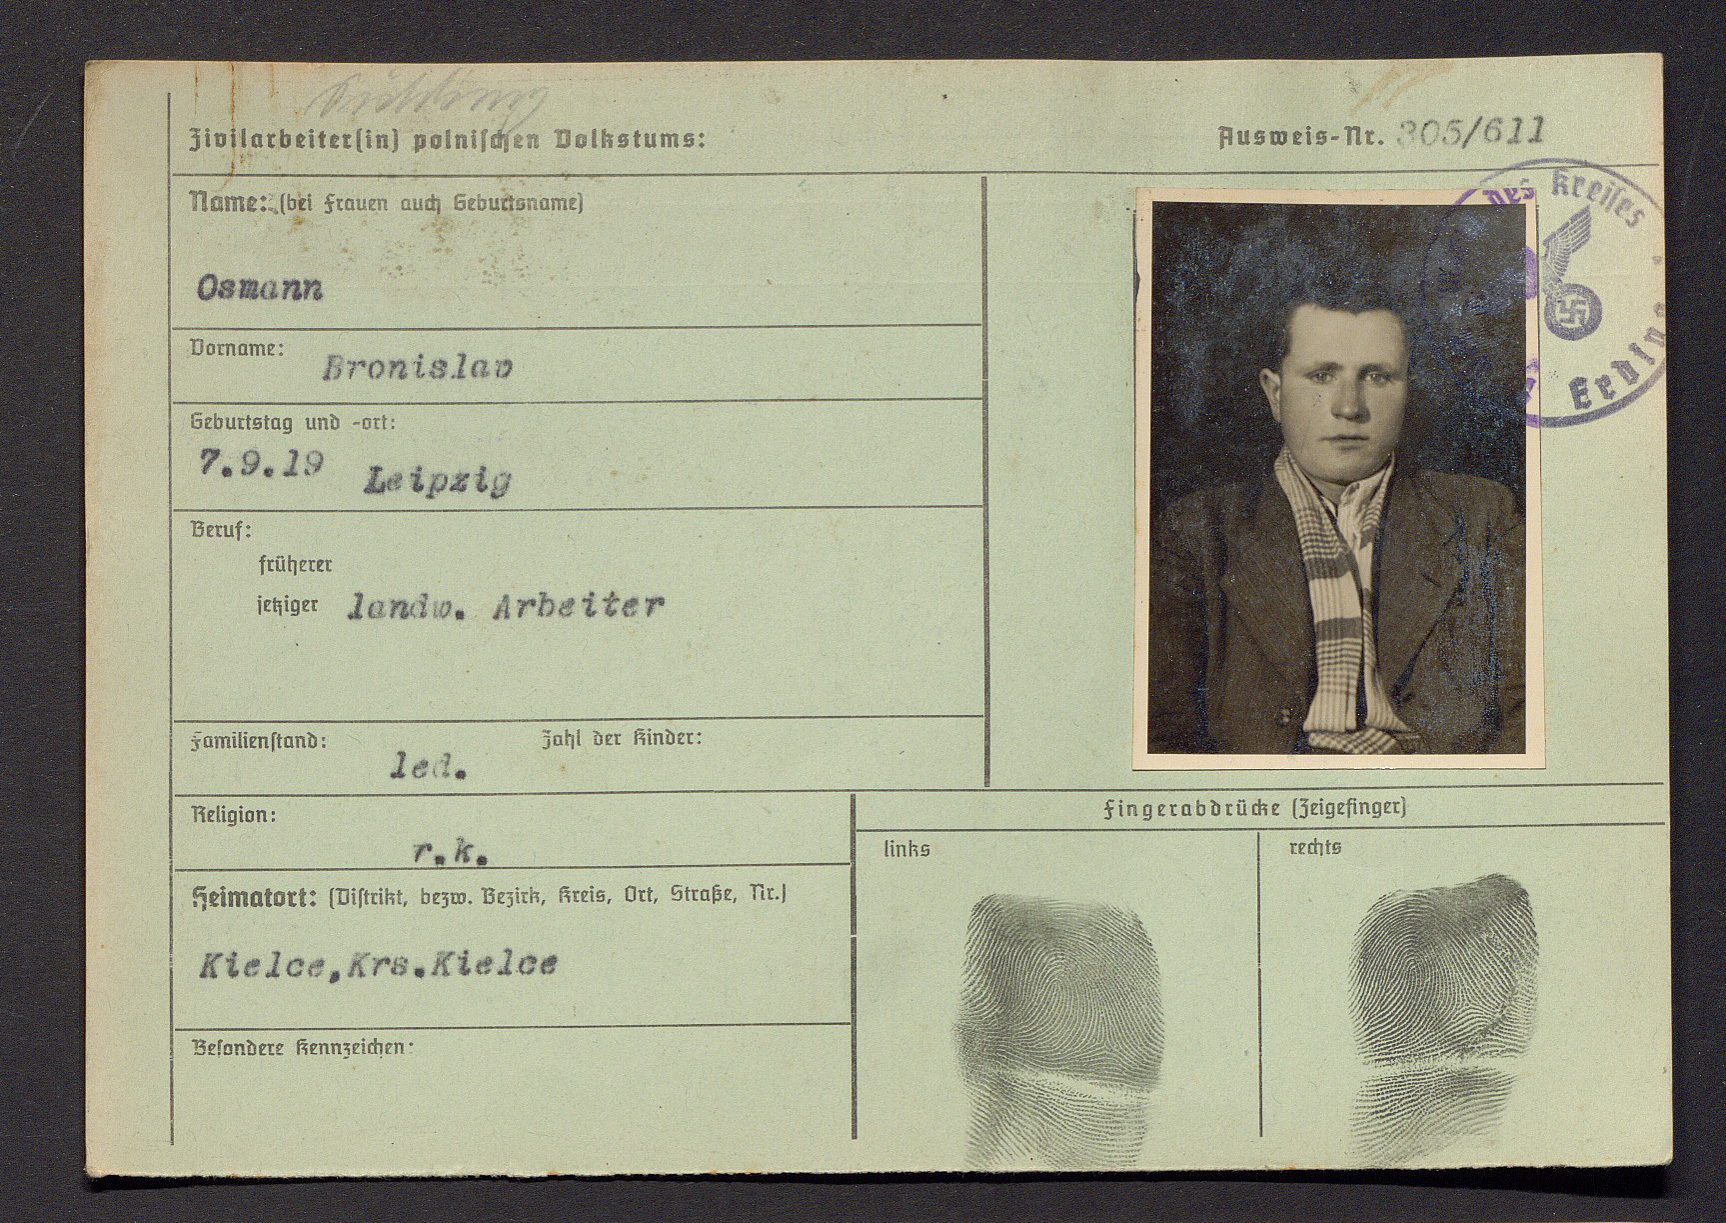 Zivilarbeiter(in) polnischen Volkstums:
Ausweis-Nr. 305/611
Name: (bei Frauen auch Geburtsname)
Osmann
Vorname: Bronislav
Geburtstag und -ort:
7.9.19 Leipzig
Beruf:
früherer
jetziger landw. Arbeiter
Familienstand: led. Zahl der Kinder:
Religion:
r.k.
Heimatort: (Distrikt, bezw. Bezirk, Kreis, Ort, Straße, Nr.)
Kielce,Krs.Kielce
Besondere Kennzeichen:
Fingerabdrücke (Zeigefinger)
links
rechts
des Kreises
Erding